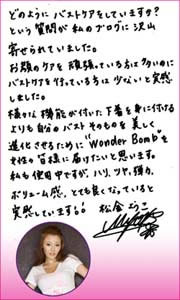 どのようにバストケアをしていますか?
という質問が私のブログに沢山
寄せられていました。
お顔のケアを頑張っている方は多いのに
バストケアを行っている方は少ないと実感
しました。
様々な機能が付いた下着を身に付ける
よりも自分のバストそのものを美しく
進化させるために"Wonder Bomb"を
女性の皆様に届けたいと思います。
私も使用中ですが、ハリ、ツヤ、弾力、
ボリューム感、とても良くなっていると
実感しています!!